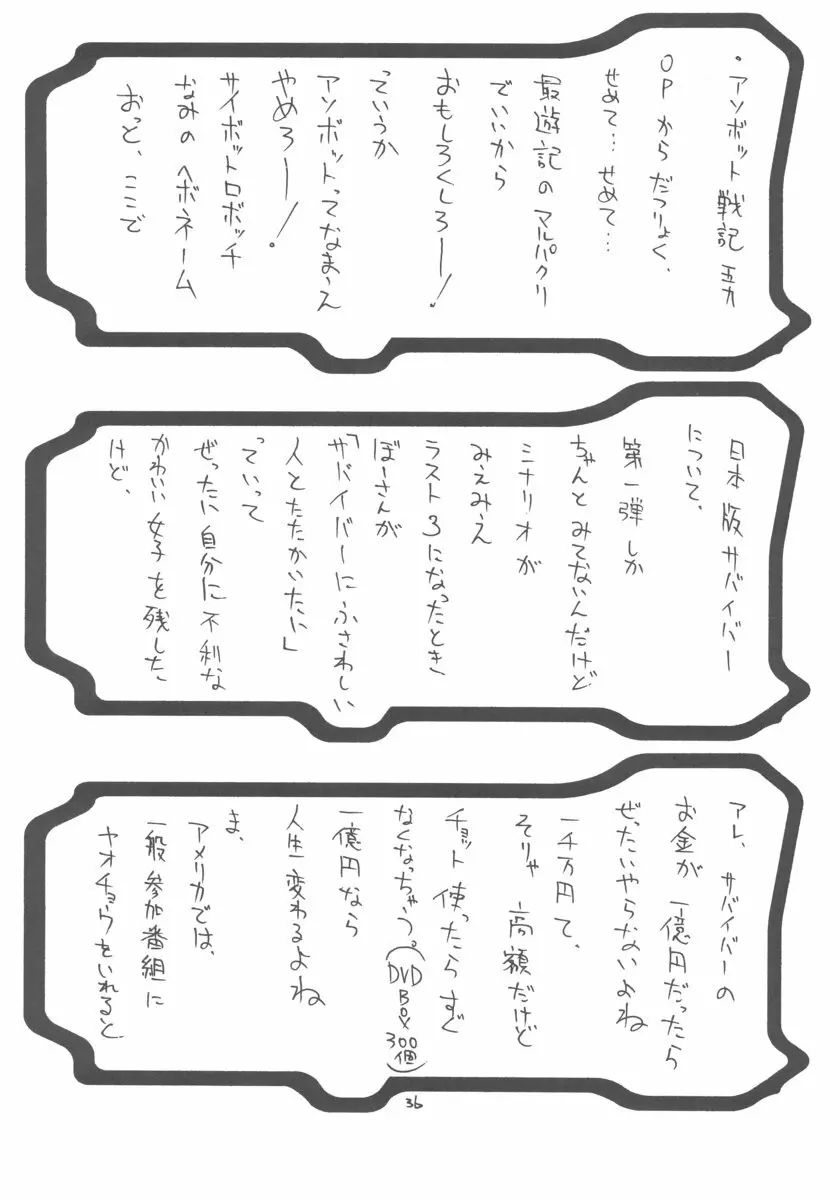 ・アソボット戦記五九
OPからだつりょく、
せめて…せめて…
最遊記のマルパクリ
でいいから
おもしろくしろー!
っていうか
アソボットってなまえ
やめろー!
サイボットロボッチ
なみのヘボネーム
おっと、ここで
日本版サバイバー
について、
第一弾しか
ちゃんとみてないんだけど
ミナリオが
みえみえ
ラスト3になったとき
ぼーさんが
「サバイバーにふさわしい
人とたたかいたい」
っていって
ぜったい自分に不利な
かわいい女子を残した、
けど、
アレ、サバイバーの
お金が一億円だったら
ぜったいやらないよね
一千万円て、
そりゃ高額だけど
チョット使ったらすぐ
なくなっちゃう。(DVDBOX300個)
一億円なら
人生変わるよね
ま、
アメリカでは、
一般参加番組に
ヤオチョウをいれると
36